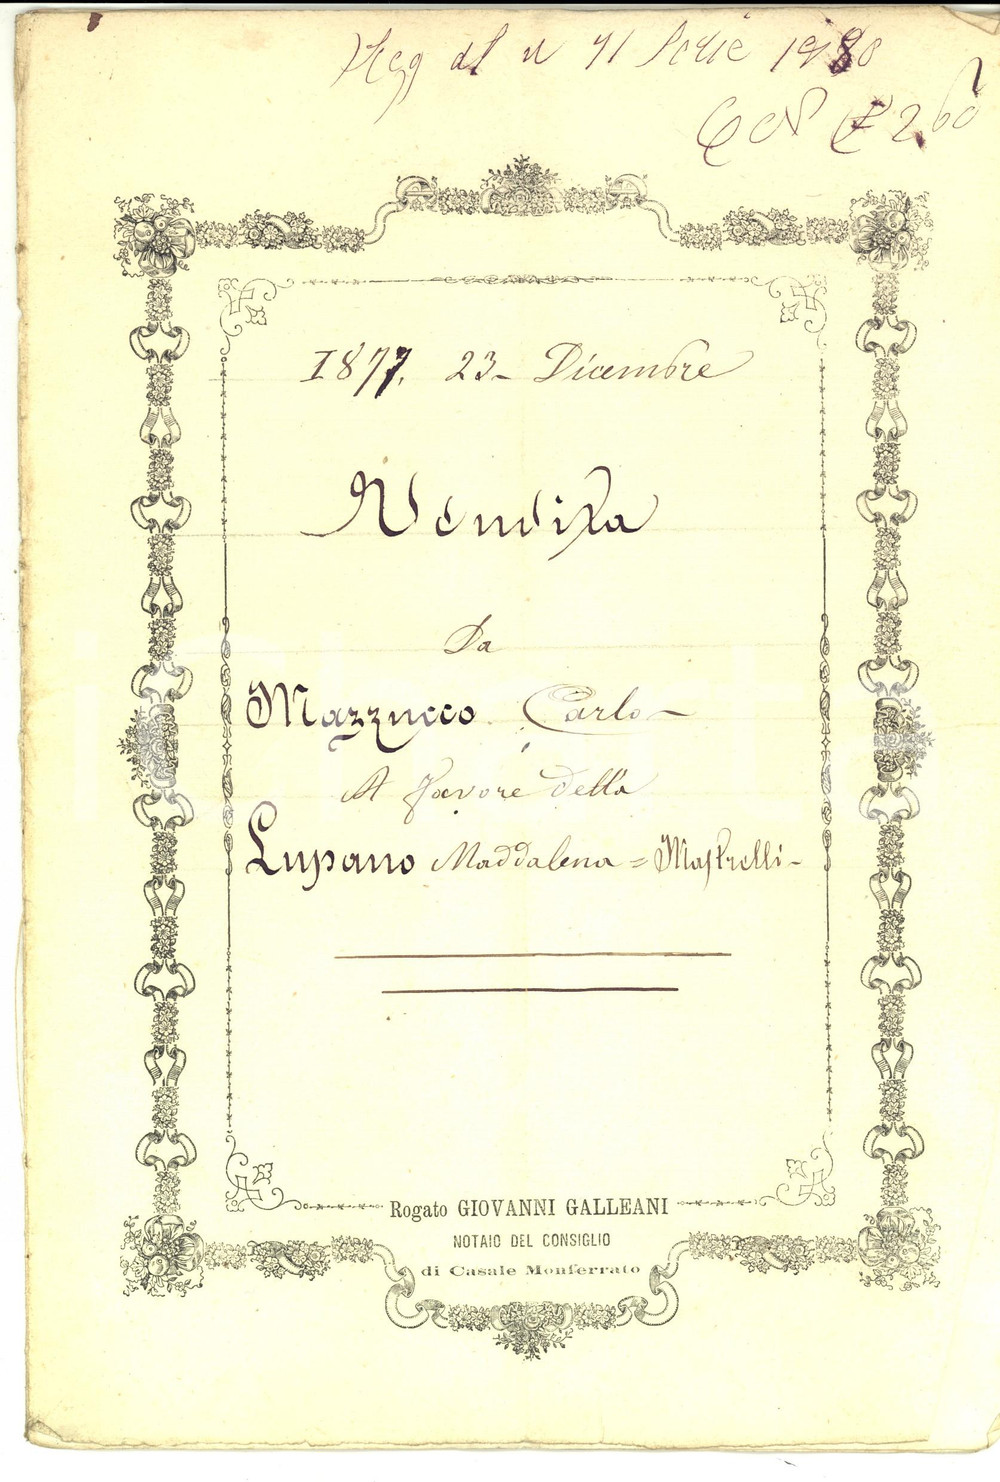 Reg al n 71 Serie
1877. 23 - Dicembre
Vendita
Da
Mazzucco Carlo -
A Favore della
Lupano Maddalena = Mastrelli -
Rogato GIOVANNI GALLEANI
NOTAIO DEL CONSIGLIO
di Casale Monferrato